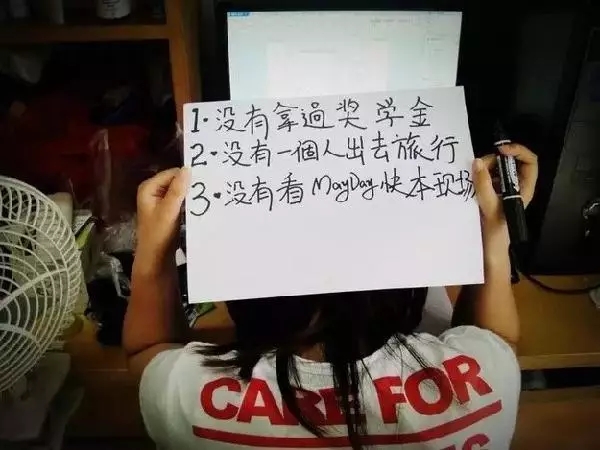 1.没有拿過奖学金
2.没有一個人出去旅行
3.没有看MayDay快本现场
CARE FOR